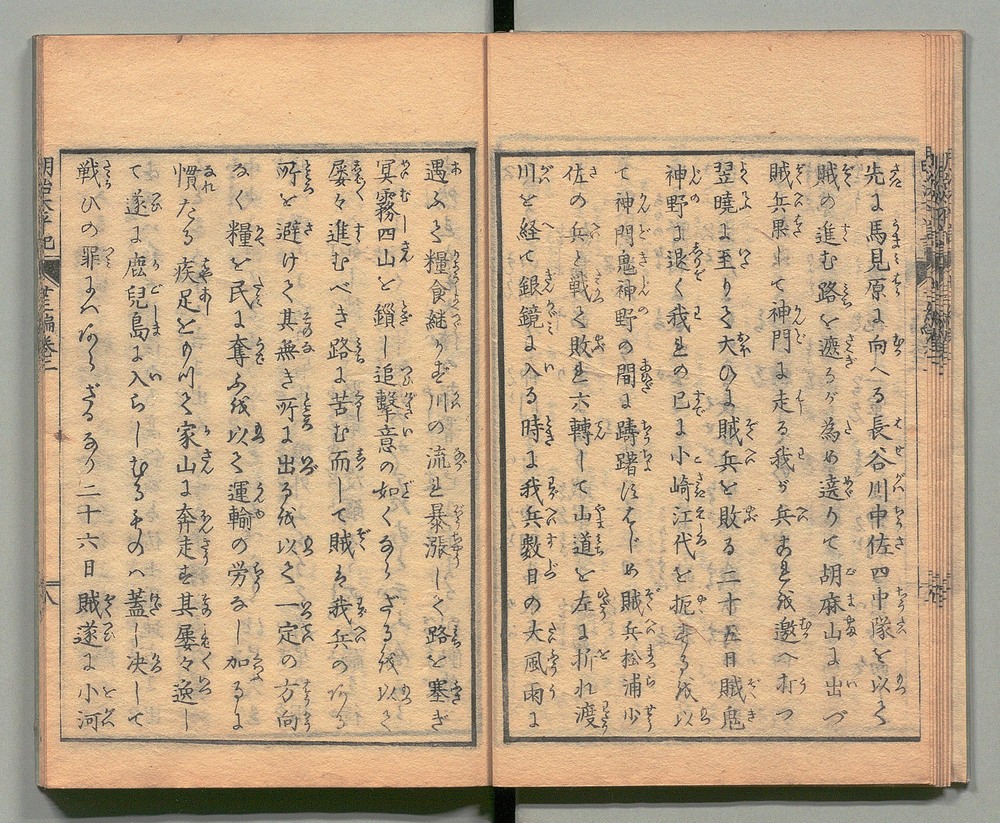 先に馬見原に向へる長谷川中佐四中隊を以て
賊の進む路を遮るが為め遶りて胡麻山に出づ
賊兵果して神門に走る我が兵これを邀へ打つ
翌曉に至りて大ひに賊兵を敗る二十五日賊鬼
神野に退く我れの已に小崎江代を扼するを以
て神門鬼神野の間に躊躇すはじめ賊兵松浦少
佐の兵と戦て敗れ六轉して山道を左に折れ渡
川を経て銀鏡に入る時に我兵數日の大風雨に
遇ふて糧食継かず川の流れ暴漲して路を塞ぎ
冥霧四山を鎖し追撃意の如くならざるを以て
屡々進むべき路に苦む而して賊は我兵の
所を避けて其無き所に出るを以て一定の方向
なく糧を民に奪ふを以て運輸の労なし加るに
慣たる疾足をもつて家山に奔走す其屡々逸し
て遂に鹿児島に入らしむるものハ蓋し决して
戦ひの罪にハあらざるなり二十六日賊遂に小河
明治太平記 廿三編巻二 八